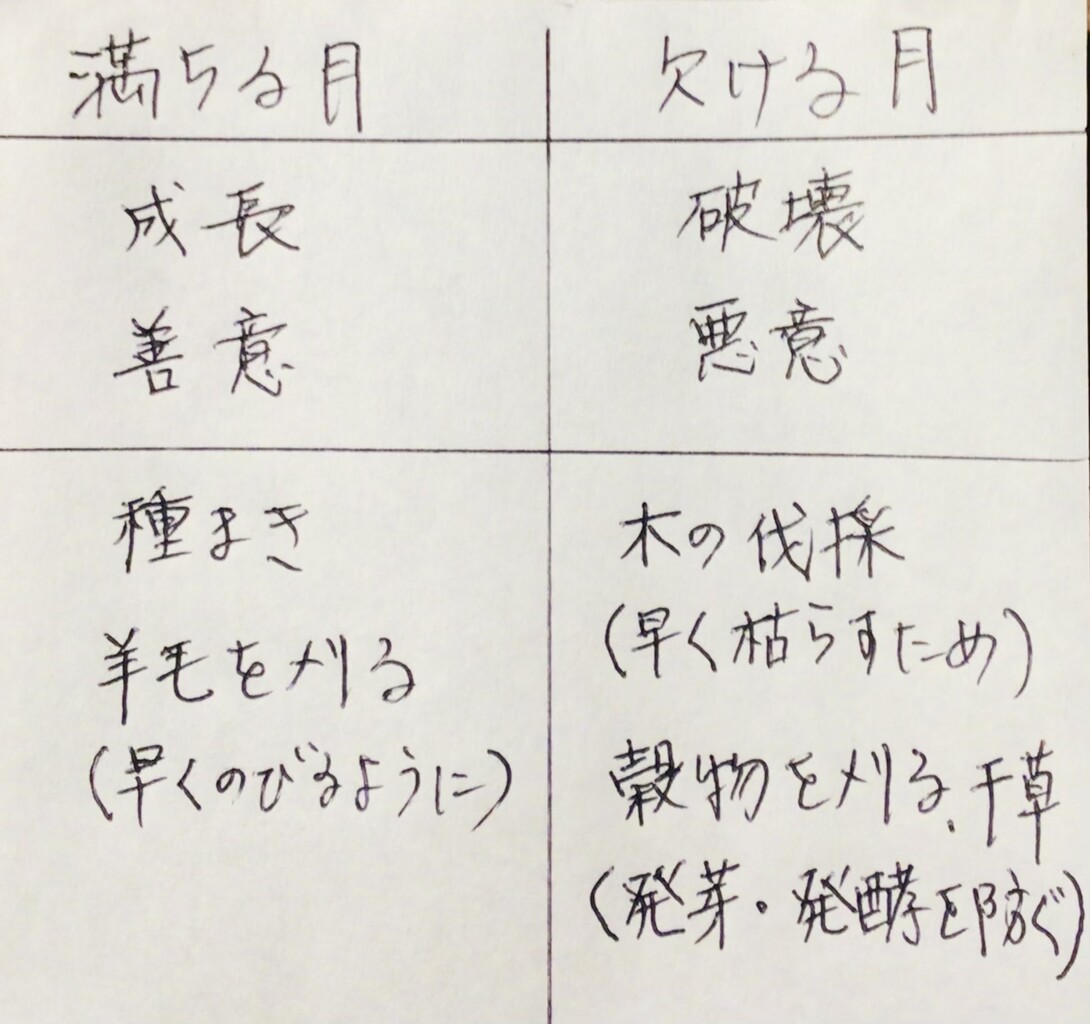 満ちる月
欠ける月
成長
善意
破壊
悪意
種まき
羊毛を刈る
(早くのびるように)
木の伐採
(早く枯らすため)
穀物を刈る、干草
(発芽・発酵を防ぐ)